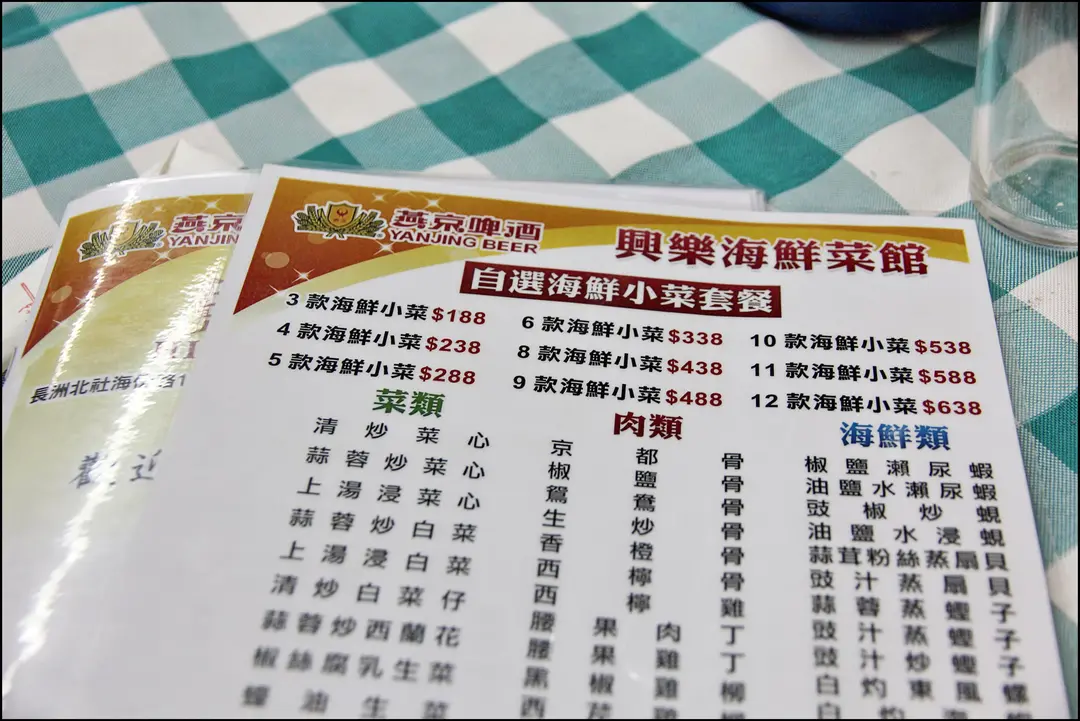 燕京啤酒
YANJING BEER
興樂海鮮菜館
自選海鮮小菜套餐
3 款海鮮小菜$188
4 款海鮮小菜$238
5 款海鮮小菜$288
6 款海鮮小菜$338
8 款海鮮小菜$438
9 款海鮮小菜$488
10 款海鮮小菜$538
11 款海鮮小菜$588
12 款海鮮小菜$638
菜類
清炒菜心
蒜蓉炒菜心
上湯浸菜心
蒜蓉炒白菜
上湯浸白菜
清炒白菜仔
蒜蓉炒西蘭花
椒絲腐乳生菜
蠔油生菜
肉類
京都骨
椒鹽骨
鴛鴦骨
生炒骨
香橙骨
西檸骨
西檸雞
腰果肉丁
腰果雞丁
黑椒雞柳
西芹雞
海鮮類
椒鹽瀨尿蝦
油鹽水瀨尿蝦
豉椒炒蜆
油鹽水浸蜆
蒜茸粉絲蒸扇貝
豉汁蒸扇貝
蒜蓉蒸蟶子
豉汁蒸蟶子
豉汁炒蟶子
白灼東風螺
白灼
燕京
YANJIN
長洲北社海傍路1
歡迎